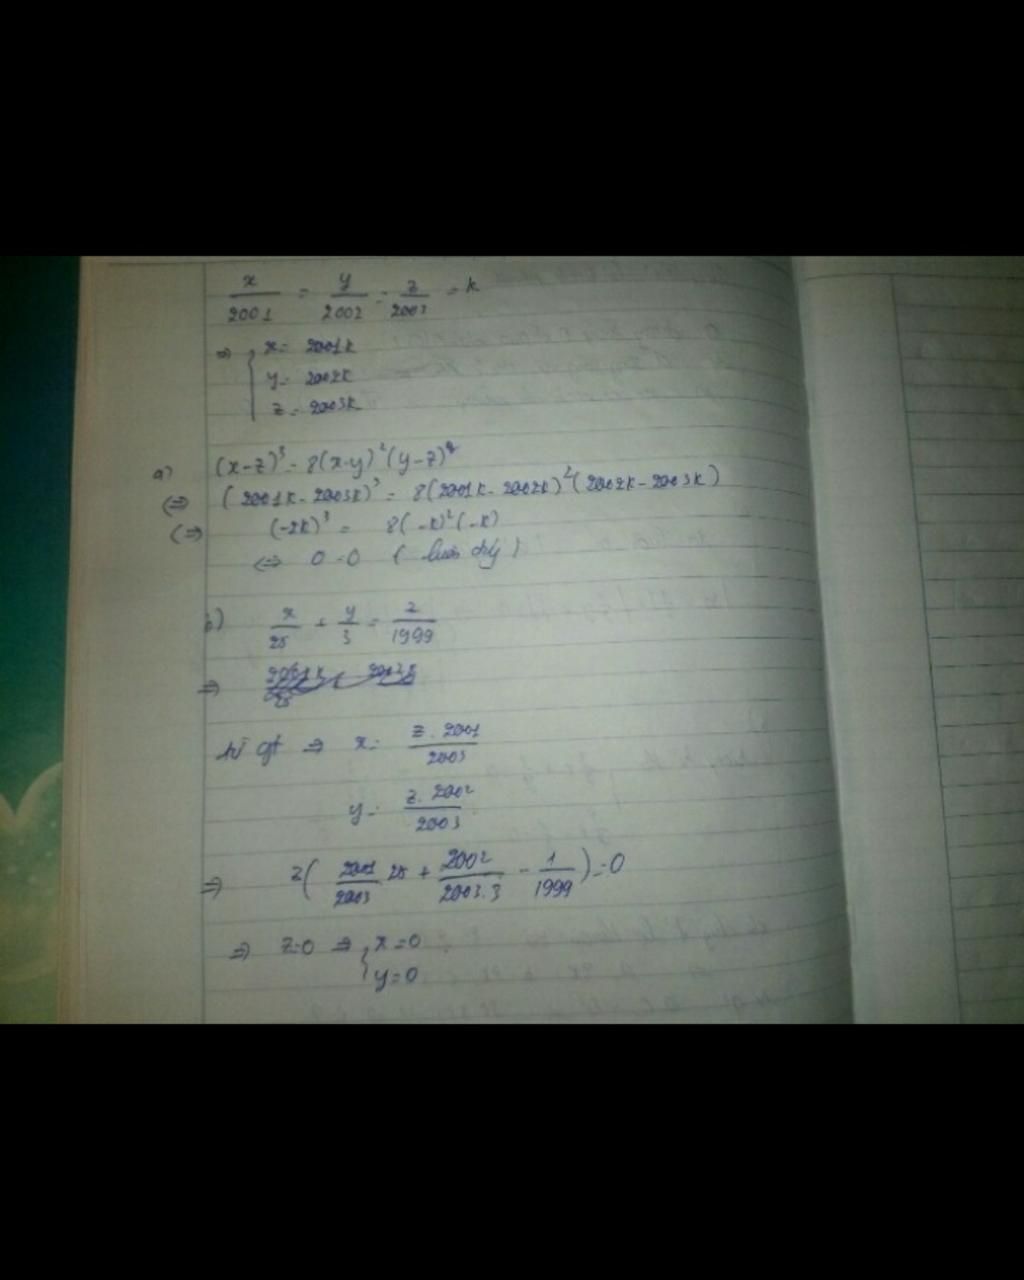 x/2001 = y/2002 = z/2003 = k
=> { x = 2001k
y = 2002k
z = 2003k
a) (x-z)³ = 8(x-y)²(y-z)
(=) (2001k - 2003k)³ = 8(2001k - 2002k)²(2002k - 2003k)
(=) (-2k)³ = 8(-k)²(-k)
<=> 0 = 0 (luôn đúng)
b) x/25 + y/3 = z/1999
=>
từ gt => x = z.2001/2003
y = z.2002/2003
=> z( 2001/2003 25 + 2002/2003.3 - 1/1999 ) = 0
=> z=0 => { x=0
y=0